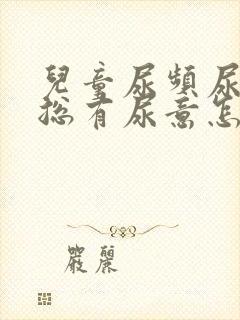 兒童尿頻尿
總有尿意怎
嚴麗